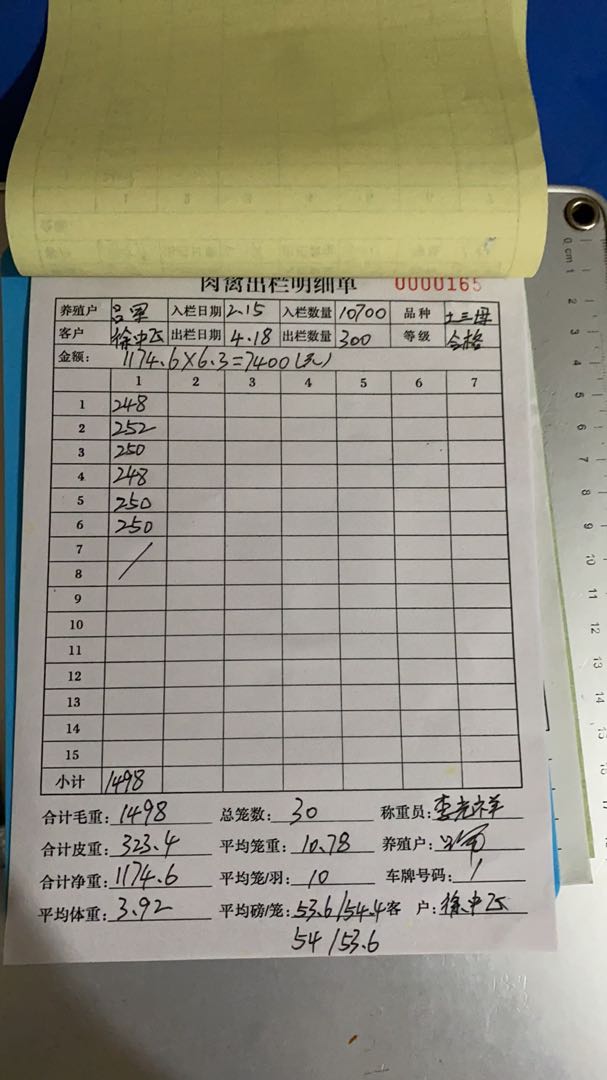 肉禽出栏明细单 0000165
养殖户 吕军 入栏日期 2.15 入栏数量 10700 品种 土三母
客户 徐中飞 出栏日期 4.18 出栏数量 300 等级 合格
金额: 1174.6×6.3=7400(元)
1 2 3 4 5 6 7
1 248
2 252
3 250
4 248
5 250
6 250
7
8
9
10
11
12
13
14
15
小计 1498
合计毛重: 1498 总笼数: 30 称重员: 李光祥
合计皮重: 323.4 平均笼重: 10.78 养殖户:
合计净重: 1174.6 平均笼/羽: 10 车牌号码: /
平均体重: 3.92 平均磅/笼: 53.6/54.4 客 户: 徐中飞
54/53.6
0 cm 1 2 3 4 5 6 7 8 9 10 11 12 13 14 15